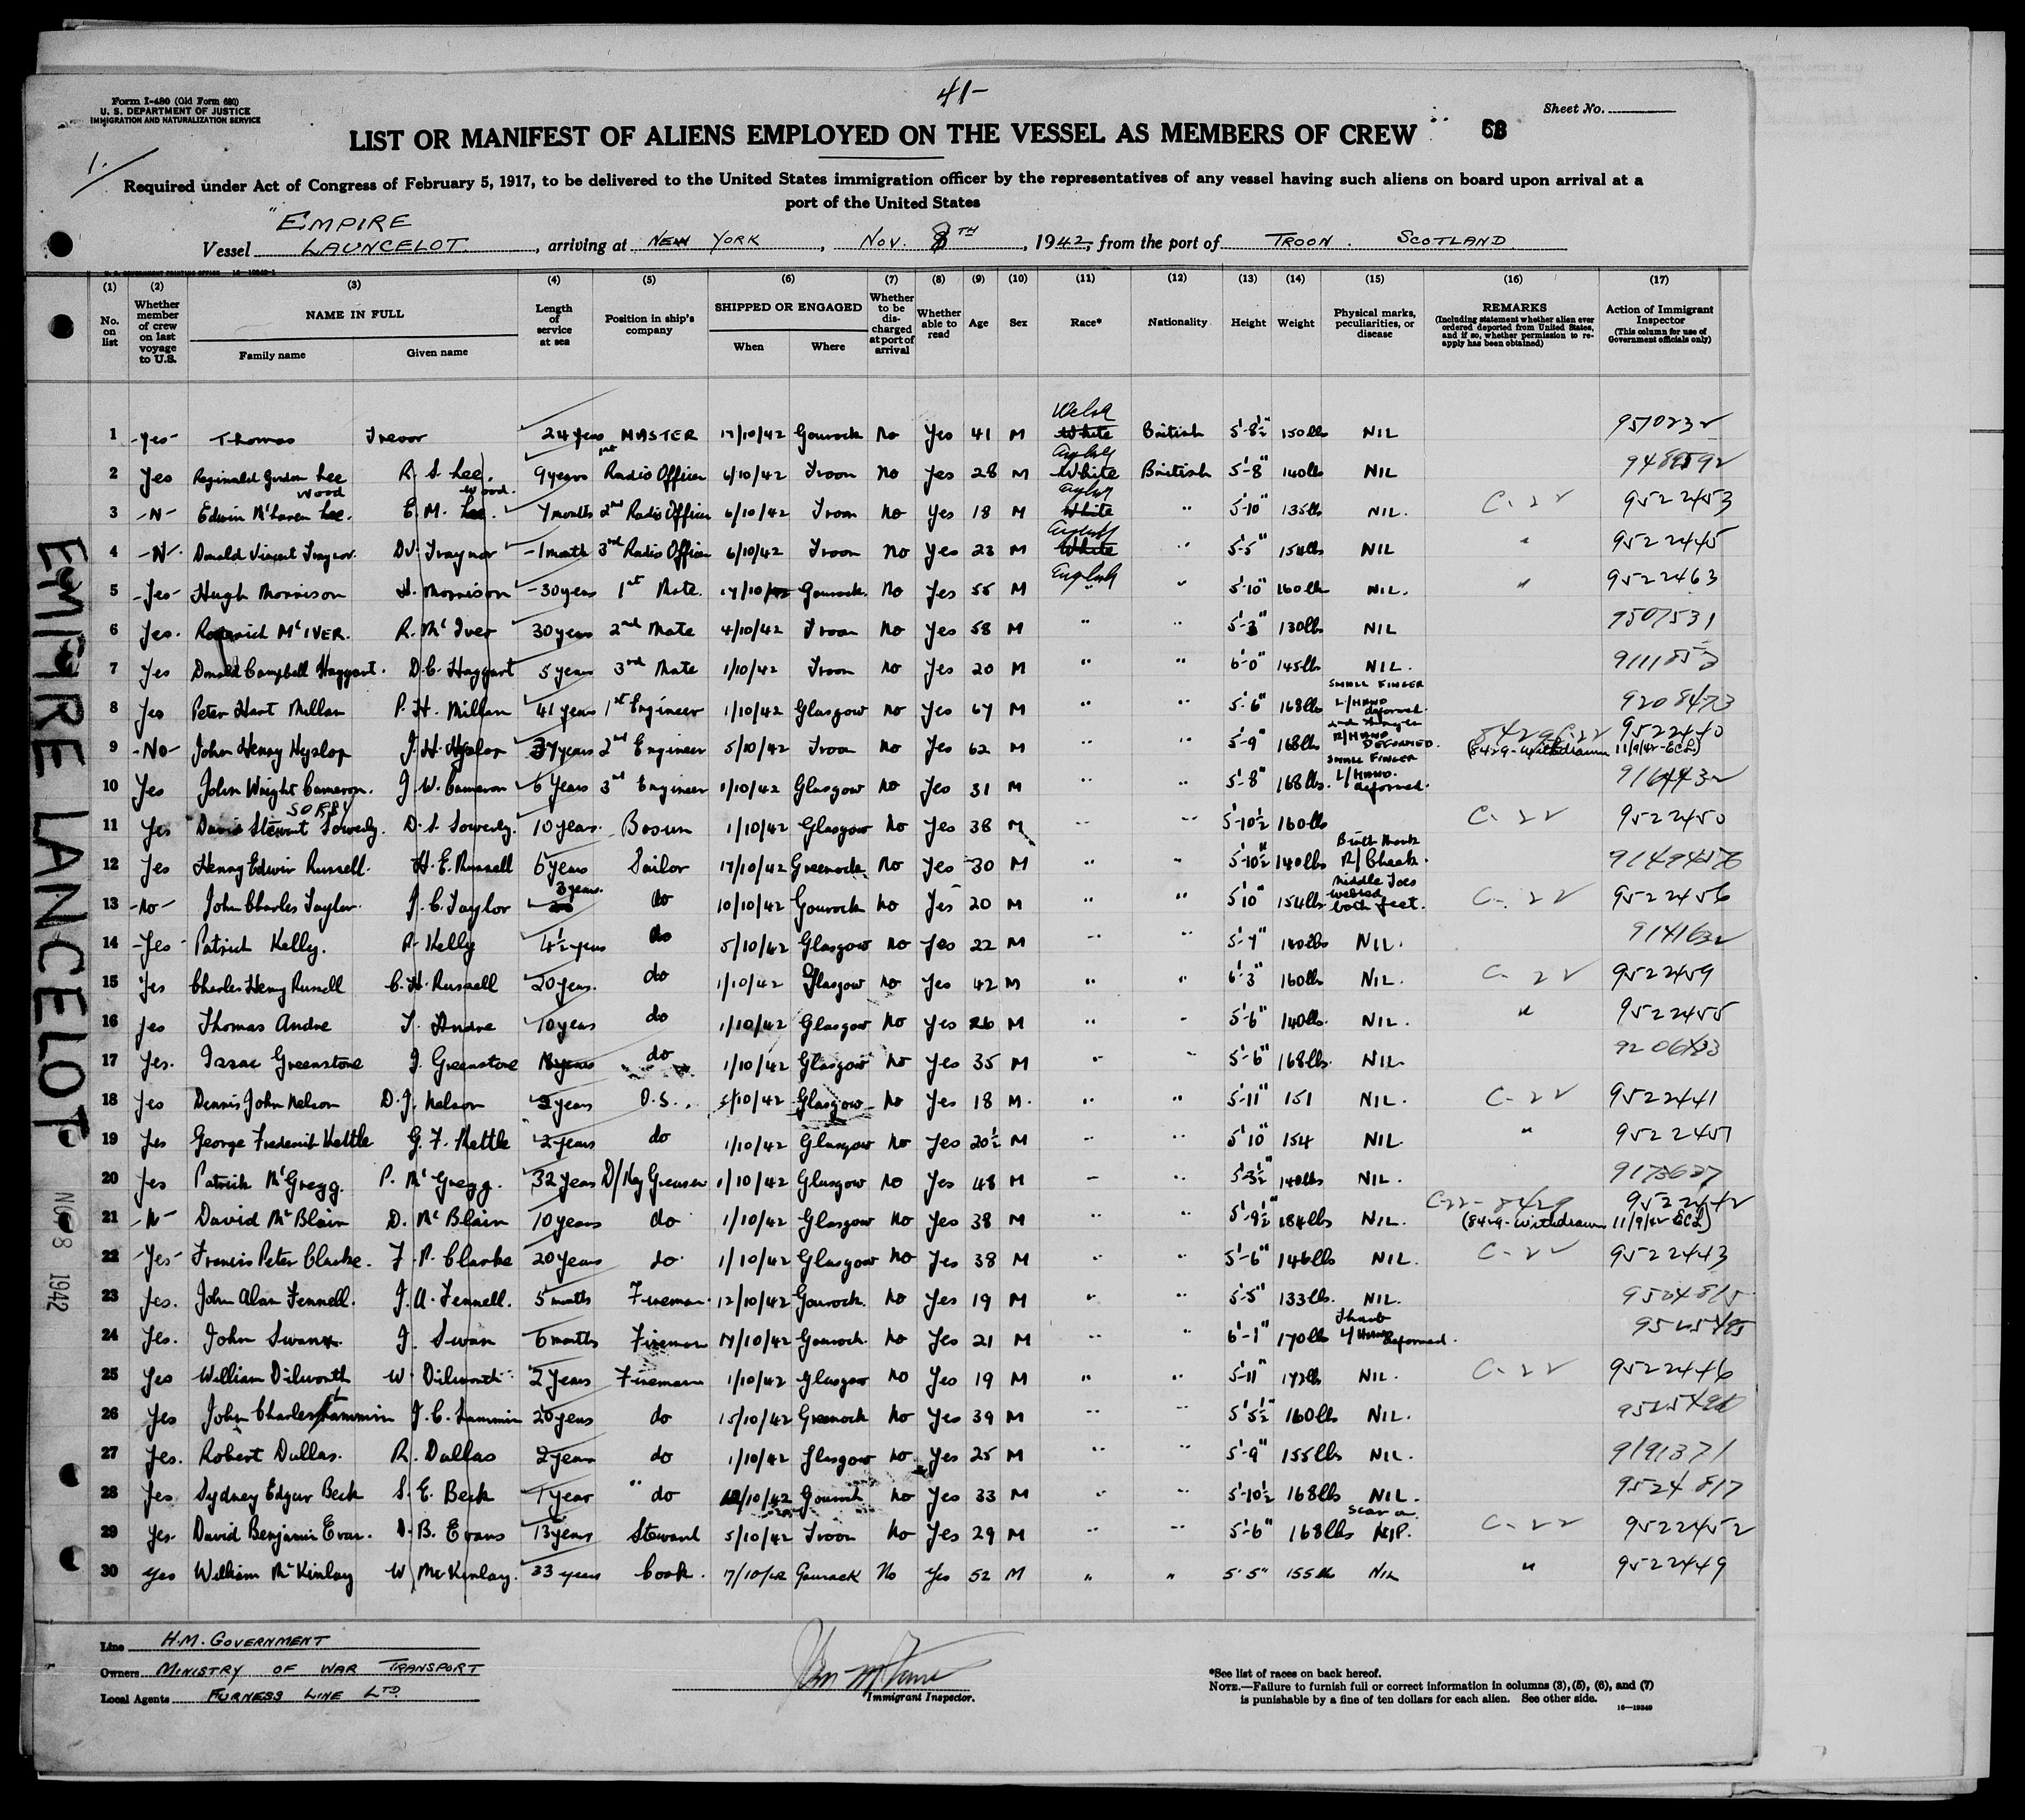 41-
Form I-480 (Old Form 680)
U. S. DEPARTMENT OF JUSTICE
IMMIGRATION AND NATURALIZATION SERVICE
Sheet No.
LIST OR MANIFEST OF ALIENS EMPLOYED ON THE VESSEL AS MEMBERS OF CREW
1.
Required under Act of Congress of February 5, 1917, to be delivered to the United States immigration officer by the representatives of any vessel having such aliens on board upon arrival at a
port of the United States
Vessel "EMPIRE LAUNCELOT, arriving at NEW YORK, Nov. 8TH, 1942, from the port of TROON. SCOTLAND
(1) (2) (3) (4) (5) (6) (7) (8) (9) (10) (11) (12) (13) (14) (15) (16) (17)
No. on list
Whether member of crew on last voyage to U.S.
NAME IN FULL
Family name Given name
Length of service at sea
Position in ship's company
SHIPPED OR ENGAGED
When Where
Whether to be discharged at port of arrival
Whether able to read
Age
Sex
Race*
Nationality
Height
Weight
Physical marks, peculiarities, or disease
REMARKS
(Including statement whether alien ever ordered deported from United States, and if so, whether permission to reapply has been obtained)
Action of Immigrant Inspector
(This column for use of Government officials only)
1 -Yes- Thomas Trevor 24 years MASTER 17/10/42 Gourock No Yes 41 M Welsh White British 5'-8½" 150 lbs NIL 9510232
2 Yes Reginald Gordon Lee R. S. Lee. 9 years 1st Radio Officer 6/10/42 Troon No Yes 28 M White British 5'-8" 140 lbs NIL
3 -N- Edwin McLaren Lee. Wood E. M. Lee. Wood. 7 months 2nd Radio Officer 6/10/42 Troon No Yes 18 M White " 5'-10" 135 lbs NIL. C-22 9522453
4 -N- Donald Vincent Traynor. D.V. Traynor -1 month 3rd Radio Officer 6/10/42 Troon No Yes 23 M White " 5'-5" 154 lbs NIL " 9522445
5 -Yes- Hugh Morrison H. Morrison -30 years 1st Mate. 17/10/42 Gourock. No Yes 55 M English " 5'-10" 160 lbs NIL. " 9522463
6 Yes. McIVER. R. McIver 30 years 2nd Mate 4/10/42 Troon No Yes 58 M " " 5'-3" 130 lbs NIL 9507531
7 Yes Donald Campbell Haggart. D.C. Haggart 5 years 3rd Mate 1/10/42 Troon No Yes 20 M " " 6'-0" 145 lbs NIL.
8 Yes Peter Hart Millar P. H. Millar 41 years 1st Engineer 1/10/42 Glasgow No Yes 67 M " " 5'-6" 168 lbs SMALL FINGER L/HAND deformed.
9 -No- John Henry Hyslop J. H. Hyslop 37 years 2nd Engineer 5/10/42 Troon No Yes 62 M " " 5'-9" 168 lbs R/HAND DEFORMED. 8429 C-22 (8429-Withdrawn 11/9/42-ECL) 9522440
10 Yes John Wright Cameron. J. W. Cameron 6 Years 3rd Engineer 1/10/42 Glasgow No Yes 31 M " " 5'-8" 168 lbs. SMALL FINGER L/HAND. deformed.
11 Yes David Stewart Sowerby. D. S. Sowerby. 10 years. Bosun 1/10/42 Glasgow No Yes 38 M " " 5'-10½ 160 lbs C-22 9522450
12 Yes Henry Edwin Russell. H. E. Russell 6 years Sailor 17/10/42 Greenock No Yes 30 M " " 5'-10½" 140 lbs Birth Mark R/Cheek.
13 -No- John Charles Taylor. J. C. Taylor 3 years. do 10/10/42 Gourock No Yes 20 M " " 5'10" 154 lbs Middle Toes webbed both feet. C-22 9522456
14 -Yes- Patrick Kelly. P. Kelly 4½ years do 5/10/42 Glasgow No Yes 22 M " " 5'-7" 140 lbs NIL.
15 Yes Charles Henry Russell C. H. Russell 20 years. do 1/10/42 Glasgow No Yes 42 M " " 6'-3" 160 lbs NIL. C-22 9522459
16 Yes Thomas Andre T. Andre 10 years do 1/10/42 Glasgow No Yes 26 M " " 5'-6" 140 lbs. NIL. " 9522455
17 Yes. Isaac Greenstone I. Greenstone years do 1/10/42 Glasgow No Yes 35 M " " 5'-6" 168 lbs. NIL.
18 Yes Dennis John Nelson D. J. Nelson 2 years O.S. 5/10/42 Glasgow No Yes 18 M. " " 5'-11" 151 NIL. C-22 9522441
19 Yes George Frederick Kettle G. F. Kettle 2 years do 1/10/42 Glasgow No Yes 20½ M " " 5'10" 154 NIL. " 9522457
20 Yes Patrick McGregg. P. McGregg. 32 years D/Key Greaser 1/10/42 Glasgow No Yes 48 M " " 5'3½" 140 lbs NIL. 9173627
21 -N- David McBlain D. McBlain 10 years do 1/10/42 Glasgow No Yes 38 M " " 5'-9½" 184 lbs NIL. C-22-8429 (8429-Withdrawn 11/9/42-ECL) 9522442
22 -Yes- Francis Peter Clarke. F. P. Clarke 20 years do 1/10/42 Glasgow No Yes 38 M " " 5'-6" 146 lbs NIL. C-22 9522443
23 Yes. John Alan Fennell. J. A. Fennell. 5 months Fireman. 12/10/42 Gourock. No Yes 19 M " " 5'-5" 133 lbs. NIL. 9524815
24 Yes. John Swan J. Swan 6 months Fireman 17/10/42 Gourock. No Yes 21 M " " 6'-1" 170 lbs Thumb L/HAND deformed.
25 Yes William Dilworth W. Dilworth 2 Years Fireman 1/10/42 Glasgow No Yes 19 M " " 5'-11" 172 lbs NIL. C-22 9522446
26 Yes John Charles Lammin J. C. Lammin 20 years do 15/10/42 Greenock No Yes 39 M " " 5'5½" 160 lbs NIL.
27 Yes. Robert Dallas. R. Dallas 2 years do 1/10/42 Glasgow No Yes 25 M " " 5'-9" 155 lbs NIL. 9191371
28 Yes Sydney Edgar Beck S. E. Beck 1 year " do /10/42 Gourock No Yes 33 M " " 5'-10½ 168 lbs NIL. 9524817
29 Yes. David Benjamin Evans. D. B. Evans 13 years Steward 5/10/42 Troon No Yes 29 M " " 5'-6" 168 lbs Scar on C-22 9522452
30 Yes William McKinlay W McKinlay. 33 years Cook. 7/10/42 Gourock No Yes 52 M " " 5'5" 155 lbs NIL " 9522449
EMPIRE LANCELOT
NOV 8 1942
Line H.M. GOVERNMENT
Owners MINISTRY OF WAR TRANSPORT
Local Agents FURNESS LINE LTD.
Immigrant Inspector.
*See list of races on back hereof.
NOTE.—Failure to furnish full or correct information in columns (3), (5), (6), and (7)
is punishable by a fine of ten dollars for each alien. See other side.
16—19340